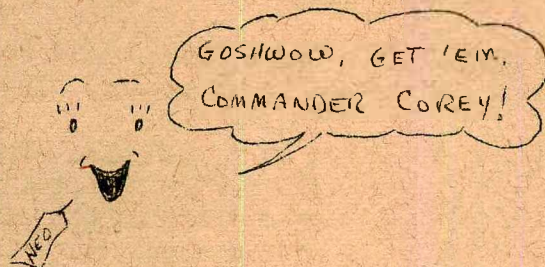 GOSHWOW, GET 'EM,
COMMANDER COREY!
NEO